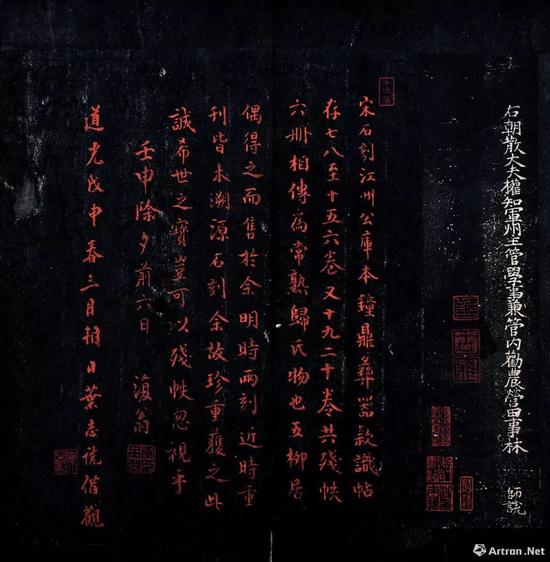 右朝散大夫權知軍州主管學事兼管內勸農營田事林 師說
宋石刻江州公庫本鐘鼎彝器款識帖
存七八至十五六卷又十九二十卷共殘帙
六冊相傳為常熟歸氏物也五柳居
偶得之而售於余明時兩刻近時重
刊皆未溯源石刻余故珍重獲之此
誠希世之寶豈可以殘帙忽視乎
壬申除夕前六日 復翁
道光戊申春三月朔日葉志詵借觀
Artron.Net